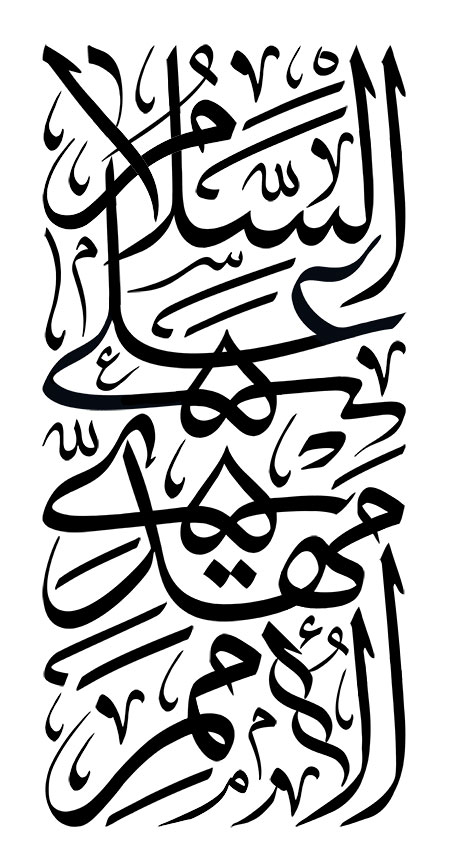 السَّلامُ
عَلَی
مَهديِّ
الأُمَمِ